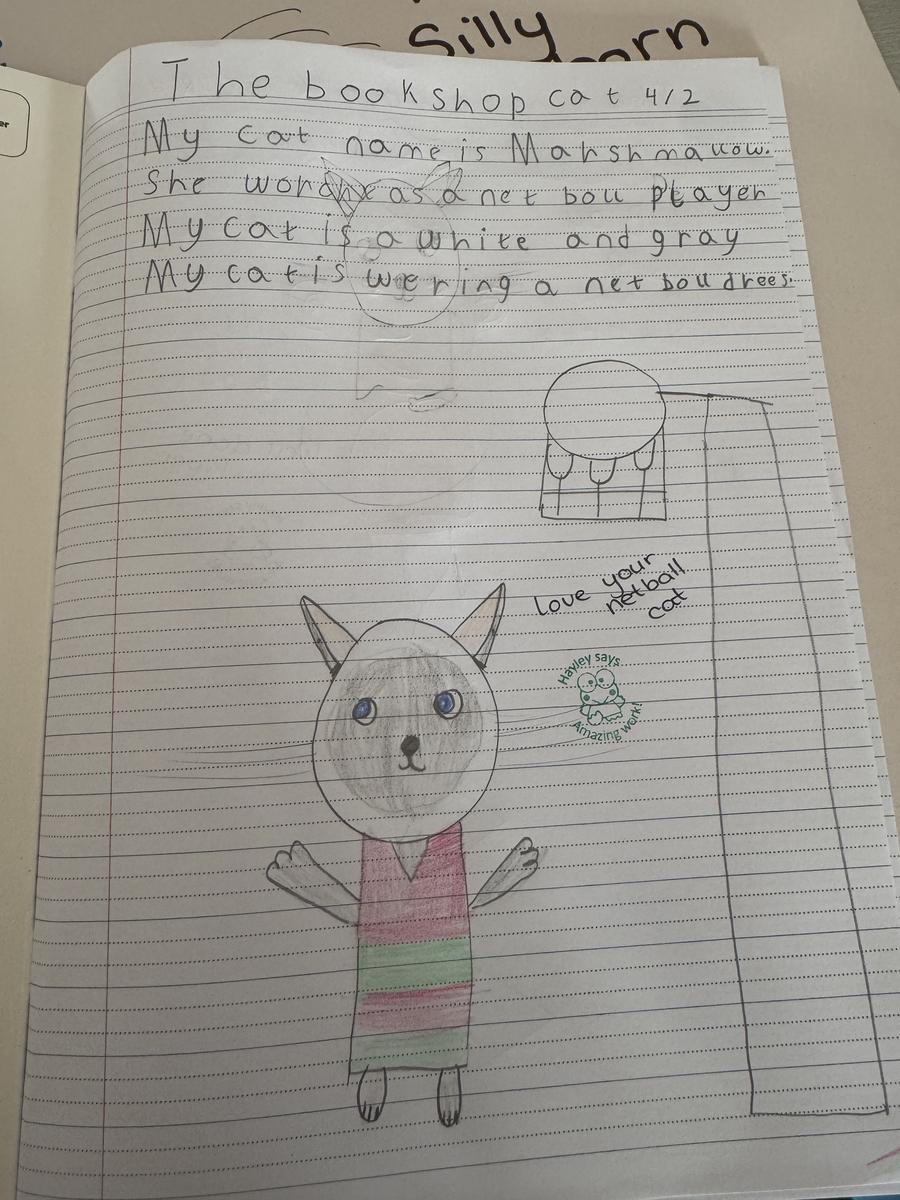 Silly
The bookshop cat 4/2
My cat name is Marshmallow.
She works as a net boll player
My cat is a white and gray
My cat is wering a net boll drees.
Love your
netball
cat
Hayley says
Amazing work!